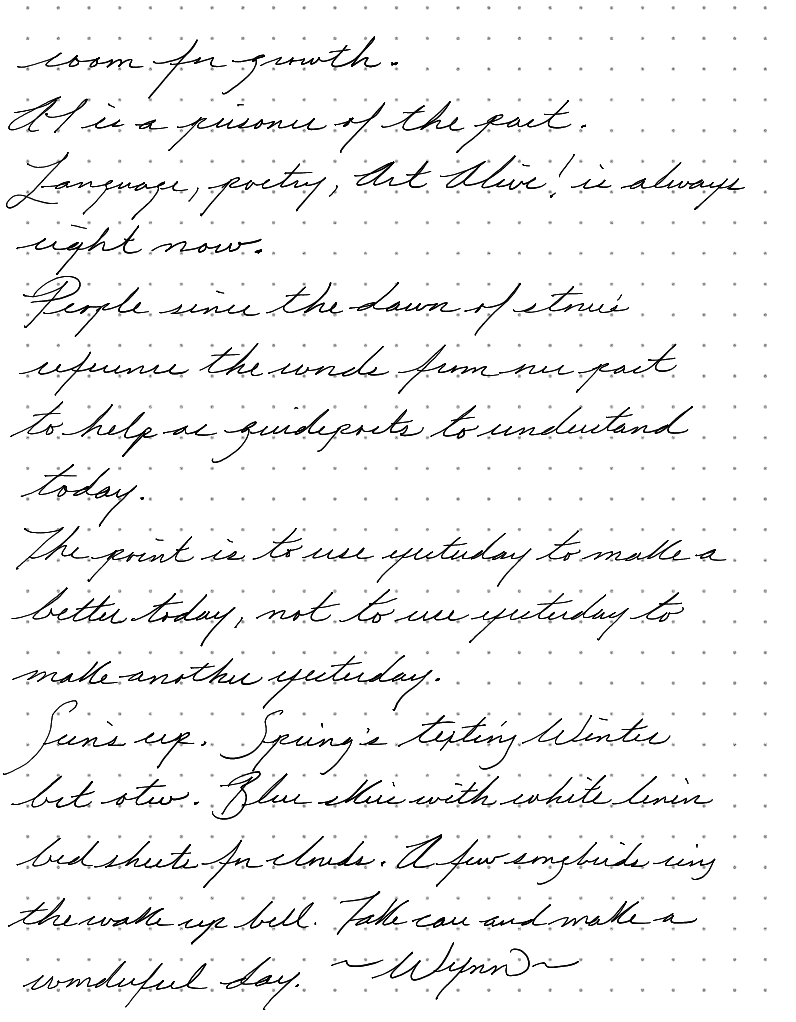 room for growth.
AI is a prisoner of the past.
Language, poetry, Art Alive! is always
right now.
People since the dawn of stories
reference the words from our past
to help as guideposts to understand
today.
The point is to use yesterday to make a
better today, not to use yesterday to
make another yesterday.
Sun's up. Spring's texting Winter
brt otw. Blue skies with white linen
bed sheets for clouds. A few songbirds ring
the wake up bell. Take care and make a
wonderful day. ~Wynn~